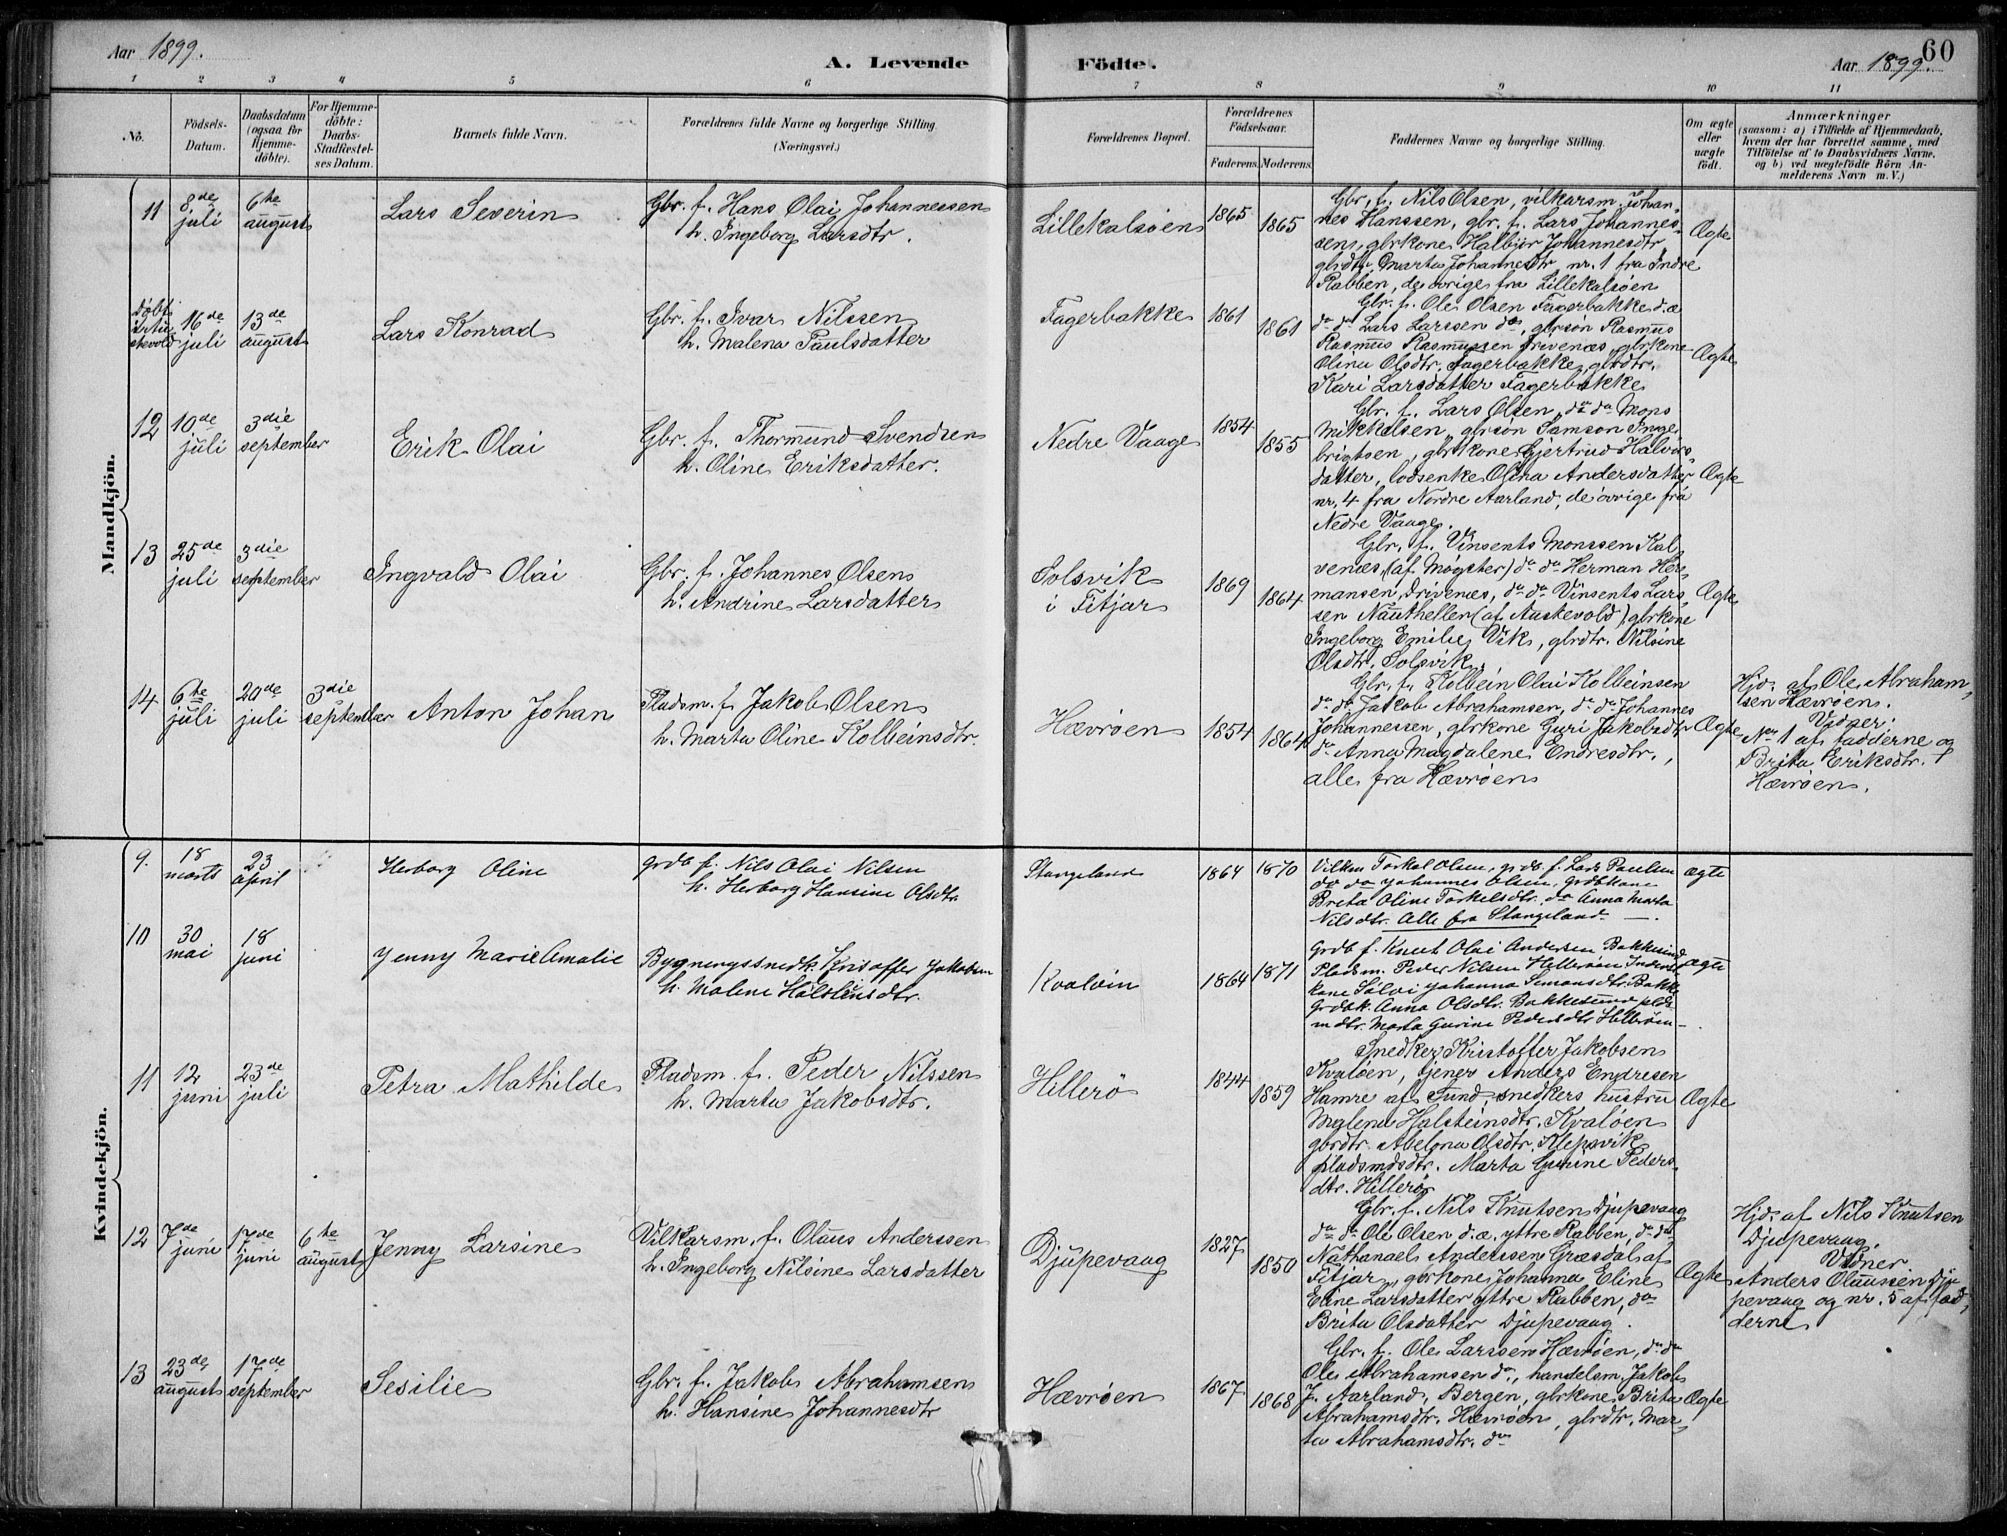 Aar 1899.
A. Levende Födte.
Aar 1899.
60
1 2 3 4 5 6 7 8 9 10 11
No.
Födsels-Datum.
Daabsdatum (ogsaa for Hjemme-döbte).
For Hjemme-döbte: Daabs-Stadfæstel-ses Datum.
Barnets fulde Navn.
Forældrenes fulde Navne og borgerlige Stilling (Næringsvei.)
Forældrenes Bopæl.
Forældrenes Födselsaar.
Faderens. Moderens.
Faddernes Navne og borgerlige Stilling.
Om ægte eller uægte födt.
Anmærkninger
(saasom: a) i Tilfælde af Hjemmedaab,
hvem der har forrettet samme, med
Tilföielse af to Daabsvidners Navne,
og b) ved uægtefödte Börn An-
melderens Navn m. V.)
Mandkjön.
11 8de juli 6te august
Lars Severin
Gbr. f. Hans Olai Johannessen
h. Ingeborg Larsdtr.
Lillekalsøen 1865 1865
Gbr. f. Nils Olsen, vilkarsm. Johan-
nes Hanssen, gbr. f. Lars Johannes-
sen, gbrkone Halbjør Johannesdtr
gbrdtr. Marta Johannesdtr, nr. 1 fra Indre
Rabben, de øvrige fra Lillekalsøen
Ægte
døbt i
16de juli 13de august
Lars Konrad
Gbr. f. Ivar Nilssen
h. Malena Paulsdatter
Fagerbakke 1861 1861
Gbr. f. Ole Olsen Fagerbakke d.æ
do do Lars Larssen do, gbrsøn Rasmus
Rasmus Rasmussen Drivenæs, gbrkone
Olina Olsdtr. Fagerbakke, gbrdtr.
Kari Larsdatter Fagerbakke
Ægte
12 10de juli 3die september
Erik Olai
Gbr. f. Thormund Svendsen
h. Oline Eriksdatter.
Nedre Vaage 1854 1855
Gbr. f. Lars Olsen, do do Mons
Mikkelsen, gbrsøn Samson Inge-
brigtsen, gbrkone Gjertrud Halvors-
datter, lodsenke Olina Andersdatter
nr. 4 fra Nordre Aarland, de øvrige fra
Nedre Vaage.
Ægte
13 25de juli 3die september
Ingvald Olai
Gbr. f. Johannes Olsen
h. Andrine Larsdatter
Solsvik
i Fitjar 1869 1864
Gbr. f. Vinsents Monssen Kal-
venæs (af Møgster) do do Herman Her-
mansen Drivenæs, do do Vinsents Lars-
sen Nautheller (af Austevold), gbrkone
Ingeborg Emilie Vik, gbrdtr. Nilsine
Olsdtr. Solsvik.
Ægte
14 6te juli 20de juli 3die september
Anton Johan
Pladsm. f. Jakob Olsen
h. Marta Oline Kolbeinsdtr.
Hævrøen 1854 1864
Gbr. f. Kolbein Olai Kolbeinsen
do do Jakob Abrahamsen, do do Johannes
Johannessen, gbrkone Guri Jakobsdtr
do Anna Magdalene Endresdtr.,
alle fra Hævrøen
Ægte
Hjd. af Ole Abraham-
sen Hævrøen.
Vidner:
No 1 af fadderne og
Brita Eriksdtr.
Hævrøen.
Kvindekjön.
9. 18 marts 23 april
Herborg Oline
Grdb f. Nils Olai Nilsen
h. Herborg Hansine Olsdtr.
Stangeland 1864 1870
Vilkm Torkel Olsen, grdb. f. Lars Paulsen
do do Johannes Olsen, Grdbkone
Brita Oline Torkelsdtr. do Anna Marta
Nilsdtr. Alle fra Stangeland.
ægte
10 30 mai 18 juni
Jenny Marie Amalie
Bygningssnedk. Kristoffer Jakobsen
h. Malene Holsteinsdtr.
Kvaløen 1864 1871
Grdb f. Knut Olai Andersen Bakkesund
Pladsm. Peder Nilsen Hillerøen
kone Sølvi Johanna Simonsdtr. Bakke
Grdbk. Anna Olsdtr. Bakkesund plds
mdtr. Marta Gurine Pedersdtr Hillerøen
ægte
11 12 juni 23de juli
Petra Mathilde
Pladsm. f. Peder Nilssen
h. Marta Jakobsdtr.
Hillerø 1844 1859
Snedker Kristoffer Jakobsen
Kvaløen, tjener Anders Endresen
Hamre af Sund, snedkers hustru
Malena Halsteinsdtr. Kvaløen
gbrdtr. Abelona Olsdtr. Klepsvik
pladsmdsdtr. Marta Gurine Peders-
dtr. Hillerø
Ægte
12 7de juni 17de juni 6te august
Jenny Larsine
Vilkarsm. f. Olaus Anderssen
h. Ingeborg Nilsine Larsdatter
Djupevaag 1827 1850
Gbr. f. Nils Knutsen Djupevaag
do do Ole Olsen d.æ. yttre Rabben, do do
Nathanael Anderssen Græsdal af
Fitjar, gbrkone Johanna Eline
Eline Larsdatter yttre Rabben, do
Brita Olsdatter Djupevaag.
Ægte
Hjd. af Nils Knutsen
Djupevaag.
Vidner
Anders Olaussen Dju-
pevaag og nr. 5 af fad-
derne
13 23de august 17de september
Sesilie
Gbr. f. Jakob Abrahamsen
h. Hansine Johannesdtr
Hævrøen 1867 1868
Gbr. f. Ole Larssen Hævrøen, do do
Ole Abrahamsen do, handelsm. Jakob
J. Aarland, Bergen, gbrkone Brita
Abrahamsdtr. Hævrøen, gbrdtr. Mar-
ta Abrahamsdtr. do
Ægte